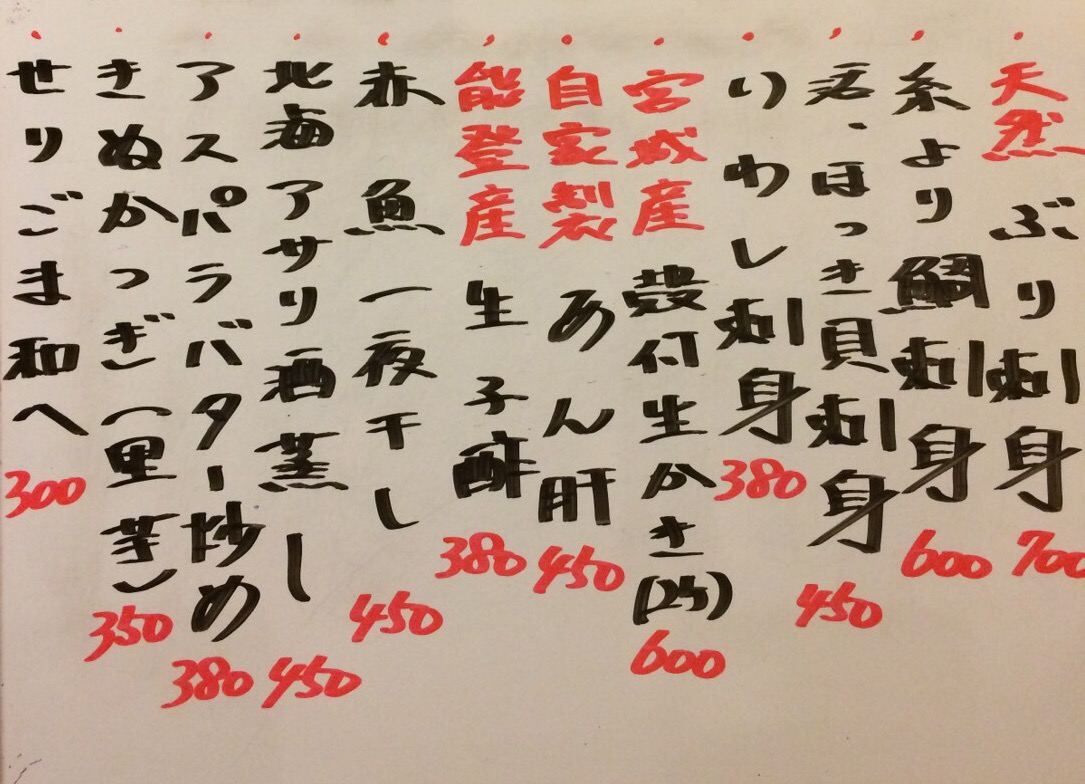 天然 ぶり刺身 700
糸より鯛刺身 600
活、ほっき貝刺身 450
いわし刺身 380
宮城産 殻付生かき(2ケ) 600
自家製 あん肝 450
能登産 生子酢 380
赤魚一夜干し 450
北海アサリ酒蒸し 450
アスパラバター炒め 380
きぬかつぎ(里芋) 350
せりごま和へ 300